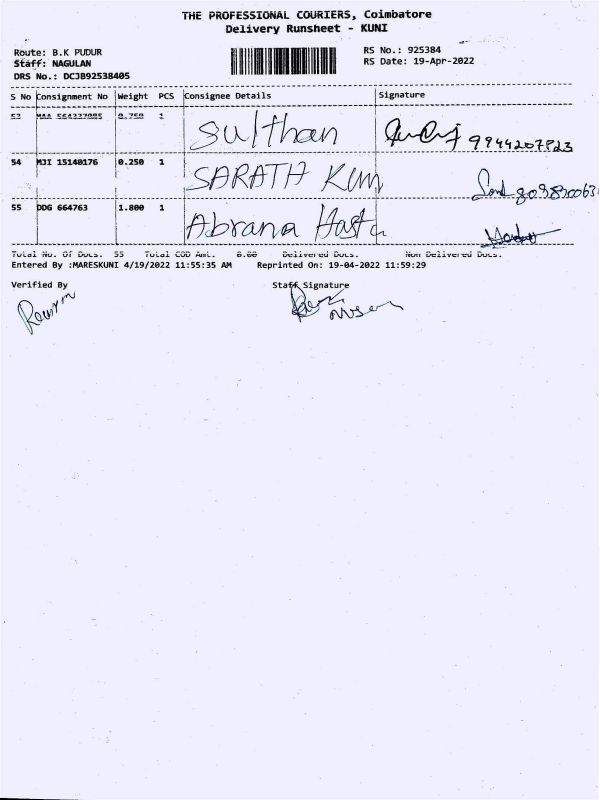 THE PROFESSIONAL COURIERS, Coimbatore
Delivery Runsheet - KUNI
Route: B.K PUDUR
Staff: NAGULAN
DRS No.: DCJB92538405
RS No.: 925384
RS Date: 19-Apr-2022
S No Consignment No Weight PCS Consignee Details Signature
53 MAA 564337085 0.750 1 Sulthan 9944207823
54 MJI 15140176 0.250 1 SARATH KUM
55 DDG 664763 1.800 1 Abrana Hasta
Total No. Of Docs. 55 Total COD Amt. 0.00 Delivered Docs. Non Delivered Docs.
Entered By :MARESKUNI 4/19/2022 11:55:35 AM Reprinted On: 19-04-2022 11:59:29
Verified By Staff Signature